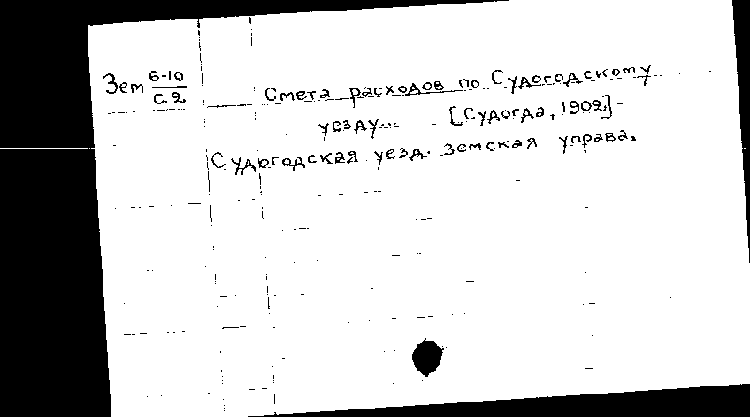 Зем 6-10
С. 2
Смета расходов по Судогодскому
уезду... [Судогда, 1909.] -
Судогодская уезд. земская управа.